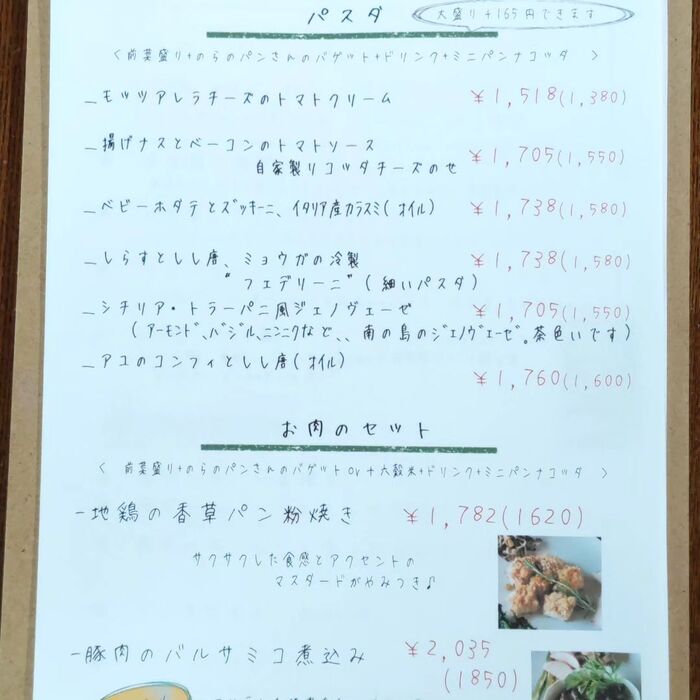 パスタ
大盛り+165円できます
< 前菜盛り+のらのパンさんのバゲット+ドリンク+ミニパンナコッタ >
_モッツアレラチーズのトマトクリーム ¥1,518(1,380)
_揚げナスとベーコンのトマトソース
自家製リコッタチーズのせ ¥1,705(1,550)
_ベビーホタテとズッキーニ、イタリア産カラスミ(オイル) ¥1,738(1,580)
_しらすとしし唐、ミョウガの冷製 ¥1,738(1,580)
"フェデリーニ"(細いパスタ)
_シチリア・トラーパニ風ジェノヴェーゼ ¥1,705(1,550)
(アーモンド、バジル、ニンニクなど、、南の島のジェノヴェーゼ。茶色いです)
_アユのコンフィとしし唐(オイル)
¥1,760(1,600)
お肉のセット
< 前菜盛り+のらのパンさんのバゲットor十六穀米+ドリンク+ミニパンナコッタ >
-地鶏の香草パン粉焼き ¥1,782(1620)
サクサクした食感とアクセントの
マスタードがやみつき♪
-豚肉のバルサミコ煮込み ¥2,035
(1850)